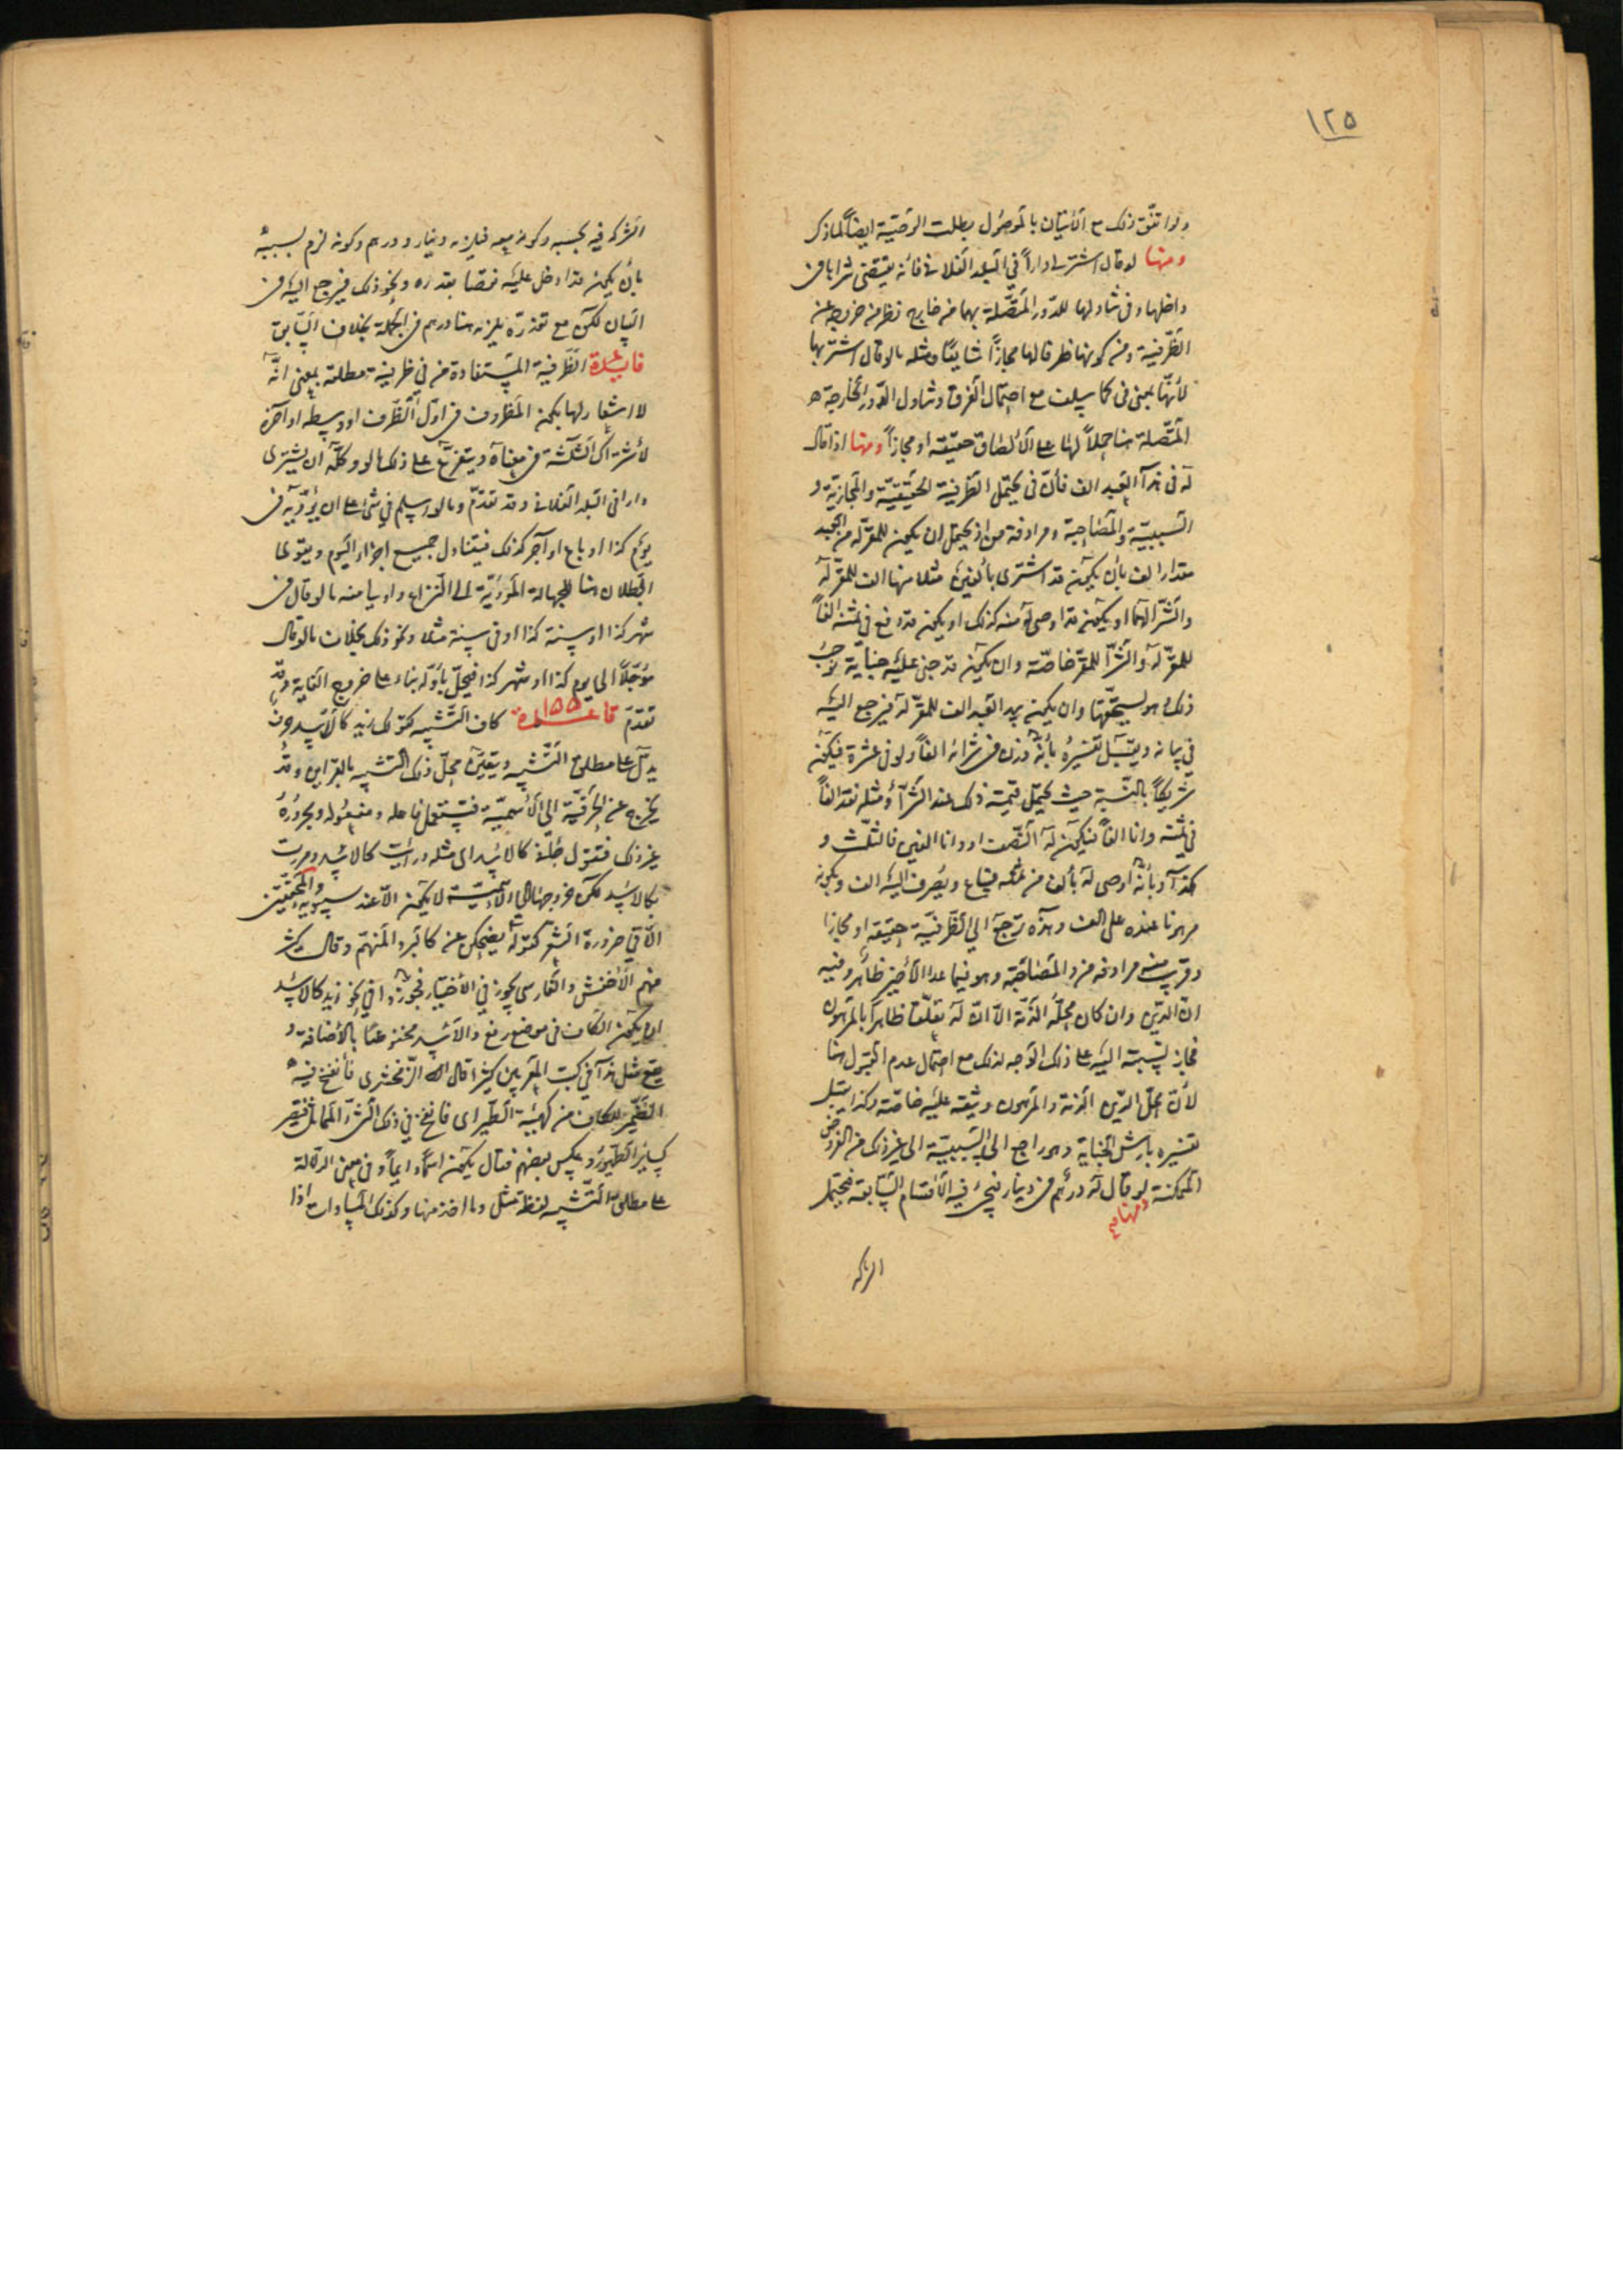 ١٢٥
ولو اتفق ذلك مع الاتيان بالموصول بطلت الوصية ايضاً لما ذكر
ومنها لو قال اشتر لي داراً في البلد الفلاني فانه يقتضى شراها في
داخلها وفي تناولها للدور المتصلة بها من خارج نظر من خروجه عن
الظرفية ومن كونها ظرفا لها مجازاً شايعاً ومثله ما لو قال اشتر بها
لأنها بمعنى في كما سلف مع احتمال الفرق وتناول الدور الخارجة
المتصلة هنا حملاً لها على الالصاق حقيقة او مجازاً ومنها اذا قال
له في هذا العبد الف فان في يحتمل الظرفية الحقيقية والمجازية و
السببية والمصاحبة ومرادفة من اذ يحتمل ان يكون للمقر له من العبد
مقدار الف بأن يكون قد اشترى بألفين مثلا منها الف للمقر له
والشرا لهما او يكون قد اوصى له منه كذلك او يكون قد دفع في ثمنه الفاً
للمقر له والشرا للمقر خاصة وان يكون قد جنى عليه جناية توجب
ذلك وهو يستحقها وان يكون بيد العبد الف للمقر له فيرجع اليه
في بيانه ويقبل تفسيره بأنه وزن في شرائه الفاً ولو في عشرة فيكون
شريكاً بالنسبة حيث يحتمل قيمته ذلك عند الشراء ومثله نقد الفاً
في ثمنه وانا الفاً فيكون له النصف او وانا الفين فالثلث و
كذا وبأنه اوصى له بألف من ثمنه فيباع ويصرف اليه الف وبكونه
مرهونا عنده على الف وهذه ترجع الى الظرفية حقيقة او مجازا
وقريب منه مرادفه من والمصاحبة وهو فيما عدا الأخير ظاهر وفيه
ان الدين وان كان محله الذمة الا ان له تعلقا ظاهرا بالمرهون
فجاز نسبته اليه على ذلك الوجه لذلك مع احتمال عدم القبول هنا
لأن محل الدين الذمة والمرهون وثيقة عليه خاصة وكذا يقبل
تفسيره بارش الجناية وهو راجع الى السببية الى غير ذلك من الفروض
الممكنة ومنها لو قال له درهم في دينار فيجئ فيه الاقسام السابقة فيحتمل
الشركة
الشركة فيه بحسبه وكونه معه فيلزمه دينار ودرهم وكونه لزم بسببه
بأن يكون قد ادخل عليه نقصا بقدره ونحو ذلك فيرجع اليه في
البيان لكن مع تعذره يلزمه هنا درهم في الجملة بخلاف السابق
فايدة الظرفية المستفادة من في ظرفية مطلقة بمعنى انه
لا اشعار لها بكون المظروف في اول الظرف او وسطه او آخره
لأشتراك الثلثة في معناه ويتفرع على ذلك ما لو وكله ان يشترى
دارا في البلد الفلاني وقد تقدم وما لو اسلم في شئ على ان يؤديه في
يوم كذا او باع او آجر كذلك فيتناول جميع اجزاء اليوم ويقوى
البطلان هنا للجهالة المؤدية الى النزاع واولى منه ما لو قال في
شهر كذا او سنة كذا او في سنة مثلا ونحو ذلك بخلاف ما لو قال
مؤجلاً الى يوم كذا او شهر كذا فيحل باوله بناء على خروج الغاية وقد
تقدم قاعدة ١٥٥ كاف التشبيه كقولك زيد كالاسد حرف
يدل على مطلق التشبيه ويتعين محل ذلك التشبيه بالقراين وقد
يخرج عن الحرفية الى الأسمية فتستعمل فاعله ومفعوله ومجروره
غير ذلك فتقول جاء كالاسد اي مثله ورأيت كالاسد ومررت
بكالاسد لكن خروجها الى الاسمية لا يكون الا عند سيبويه والمحققين
الا في ضرورة الشعر كقوله يضحكن عن كالبرد المنهم وقال كثير
منهم الاخفش والفارسى يجوز في الأختيار فجوزوا في نحو زيد كالاسد
ان يكون الكاف في موضع رفع والاسد مخفوضا بالأضافة و
يقع مثل هذا في كتب المعربين كثيرا قال الزمخشرى فأنفخ فيه
الضمير للكاف من كهيئة الطير اى فانفخ في ذلك الشئ المماثل فيصير
كساير الطيور وعكس بعضهم فقال يكون اسماً دايماً وفي معنى الدلالة
على مطلق التشبيه لفظة مثل وما اخذ منها وكذلك المساوات اذا